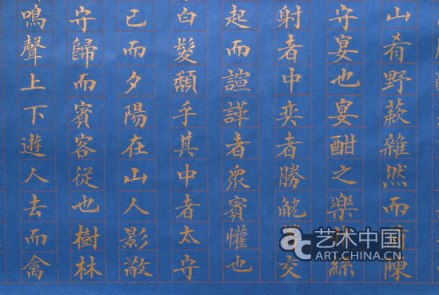 山肴野蔌雜然而陳
守宴也宴酣之樂絲
射者中奕者勝觥交
起而諠譁者衆賓懽也
白髮頹乎其中者太守
已而夕陽在山人影散
守歸而賓客從也樹林
鳴聲上下遊人去而禽
ac 艺术中国
ART.CHINA.CN